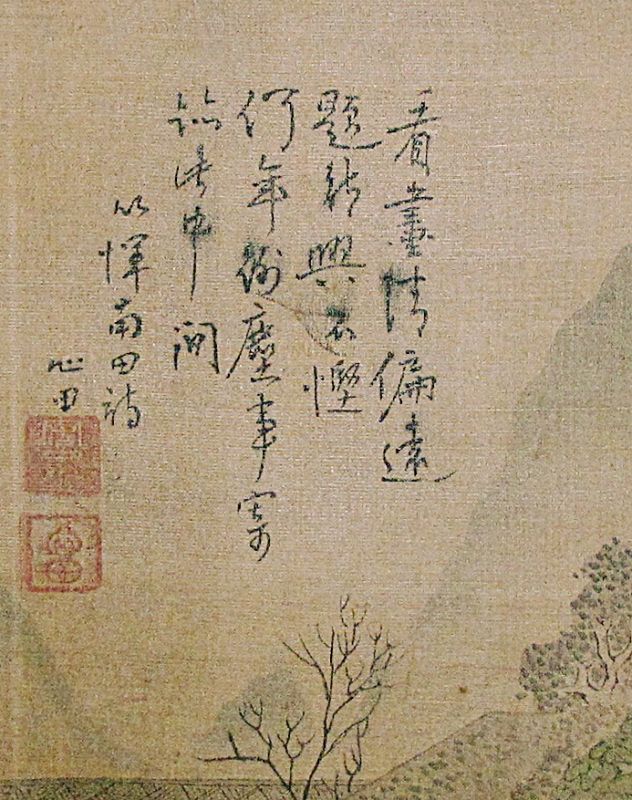 看畫情偏遠
題詩興不慳
何年塵事寄
跡此中間
以惲南田詩
心田